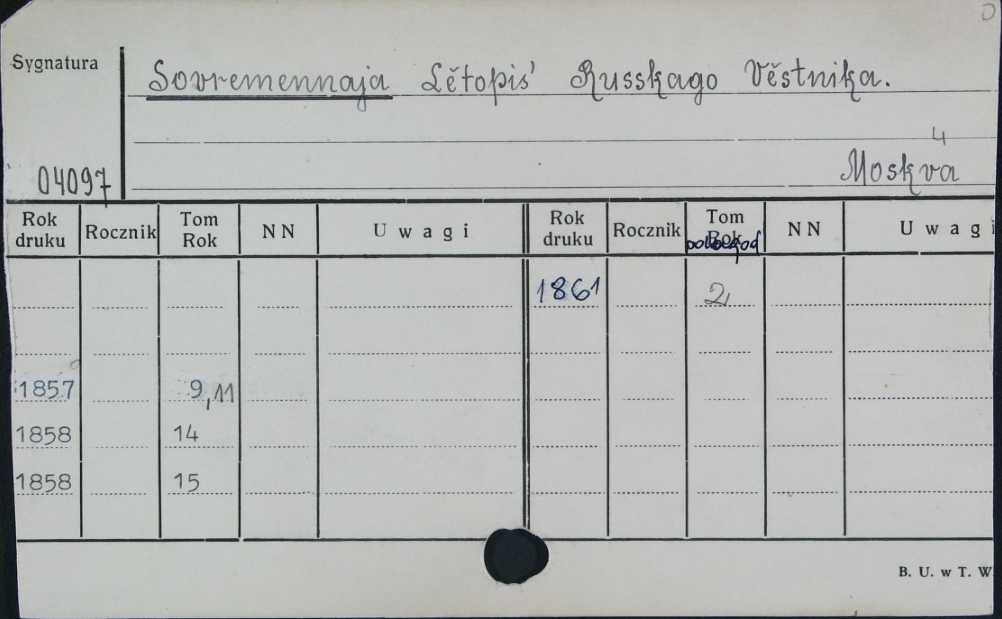 0
Sygnatura
Sovremennaja Lětopis' Russkago Věstnika.
4
04097
Moskva
Rok druku Rocznik Tom Rok NN Uwagi Rok druku Rocznik Tom Rok NN Uwagi
1861 2
1857 9,11
1858 14
1858 15
B. U. w T. W